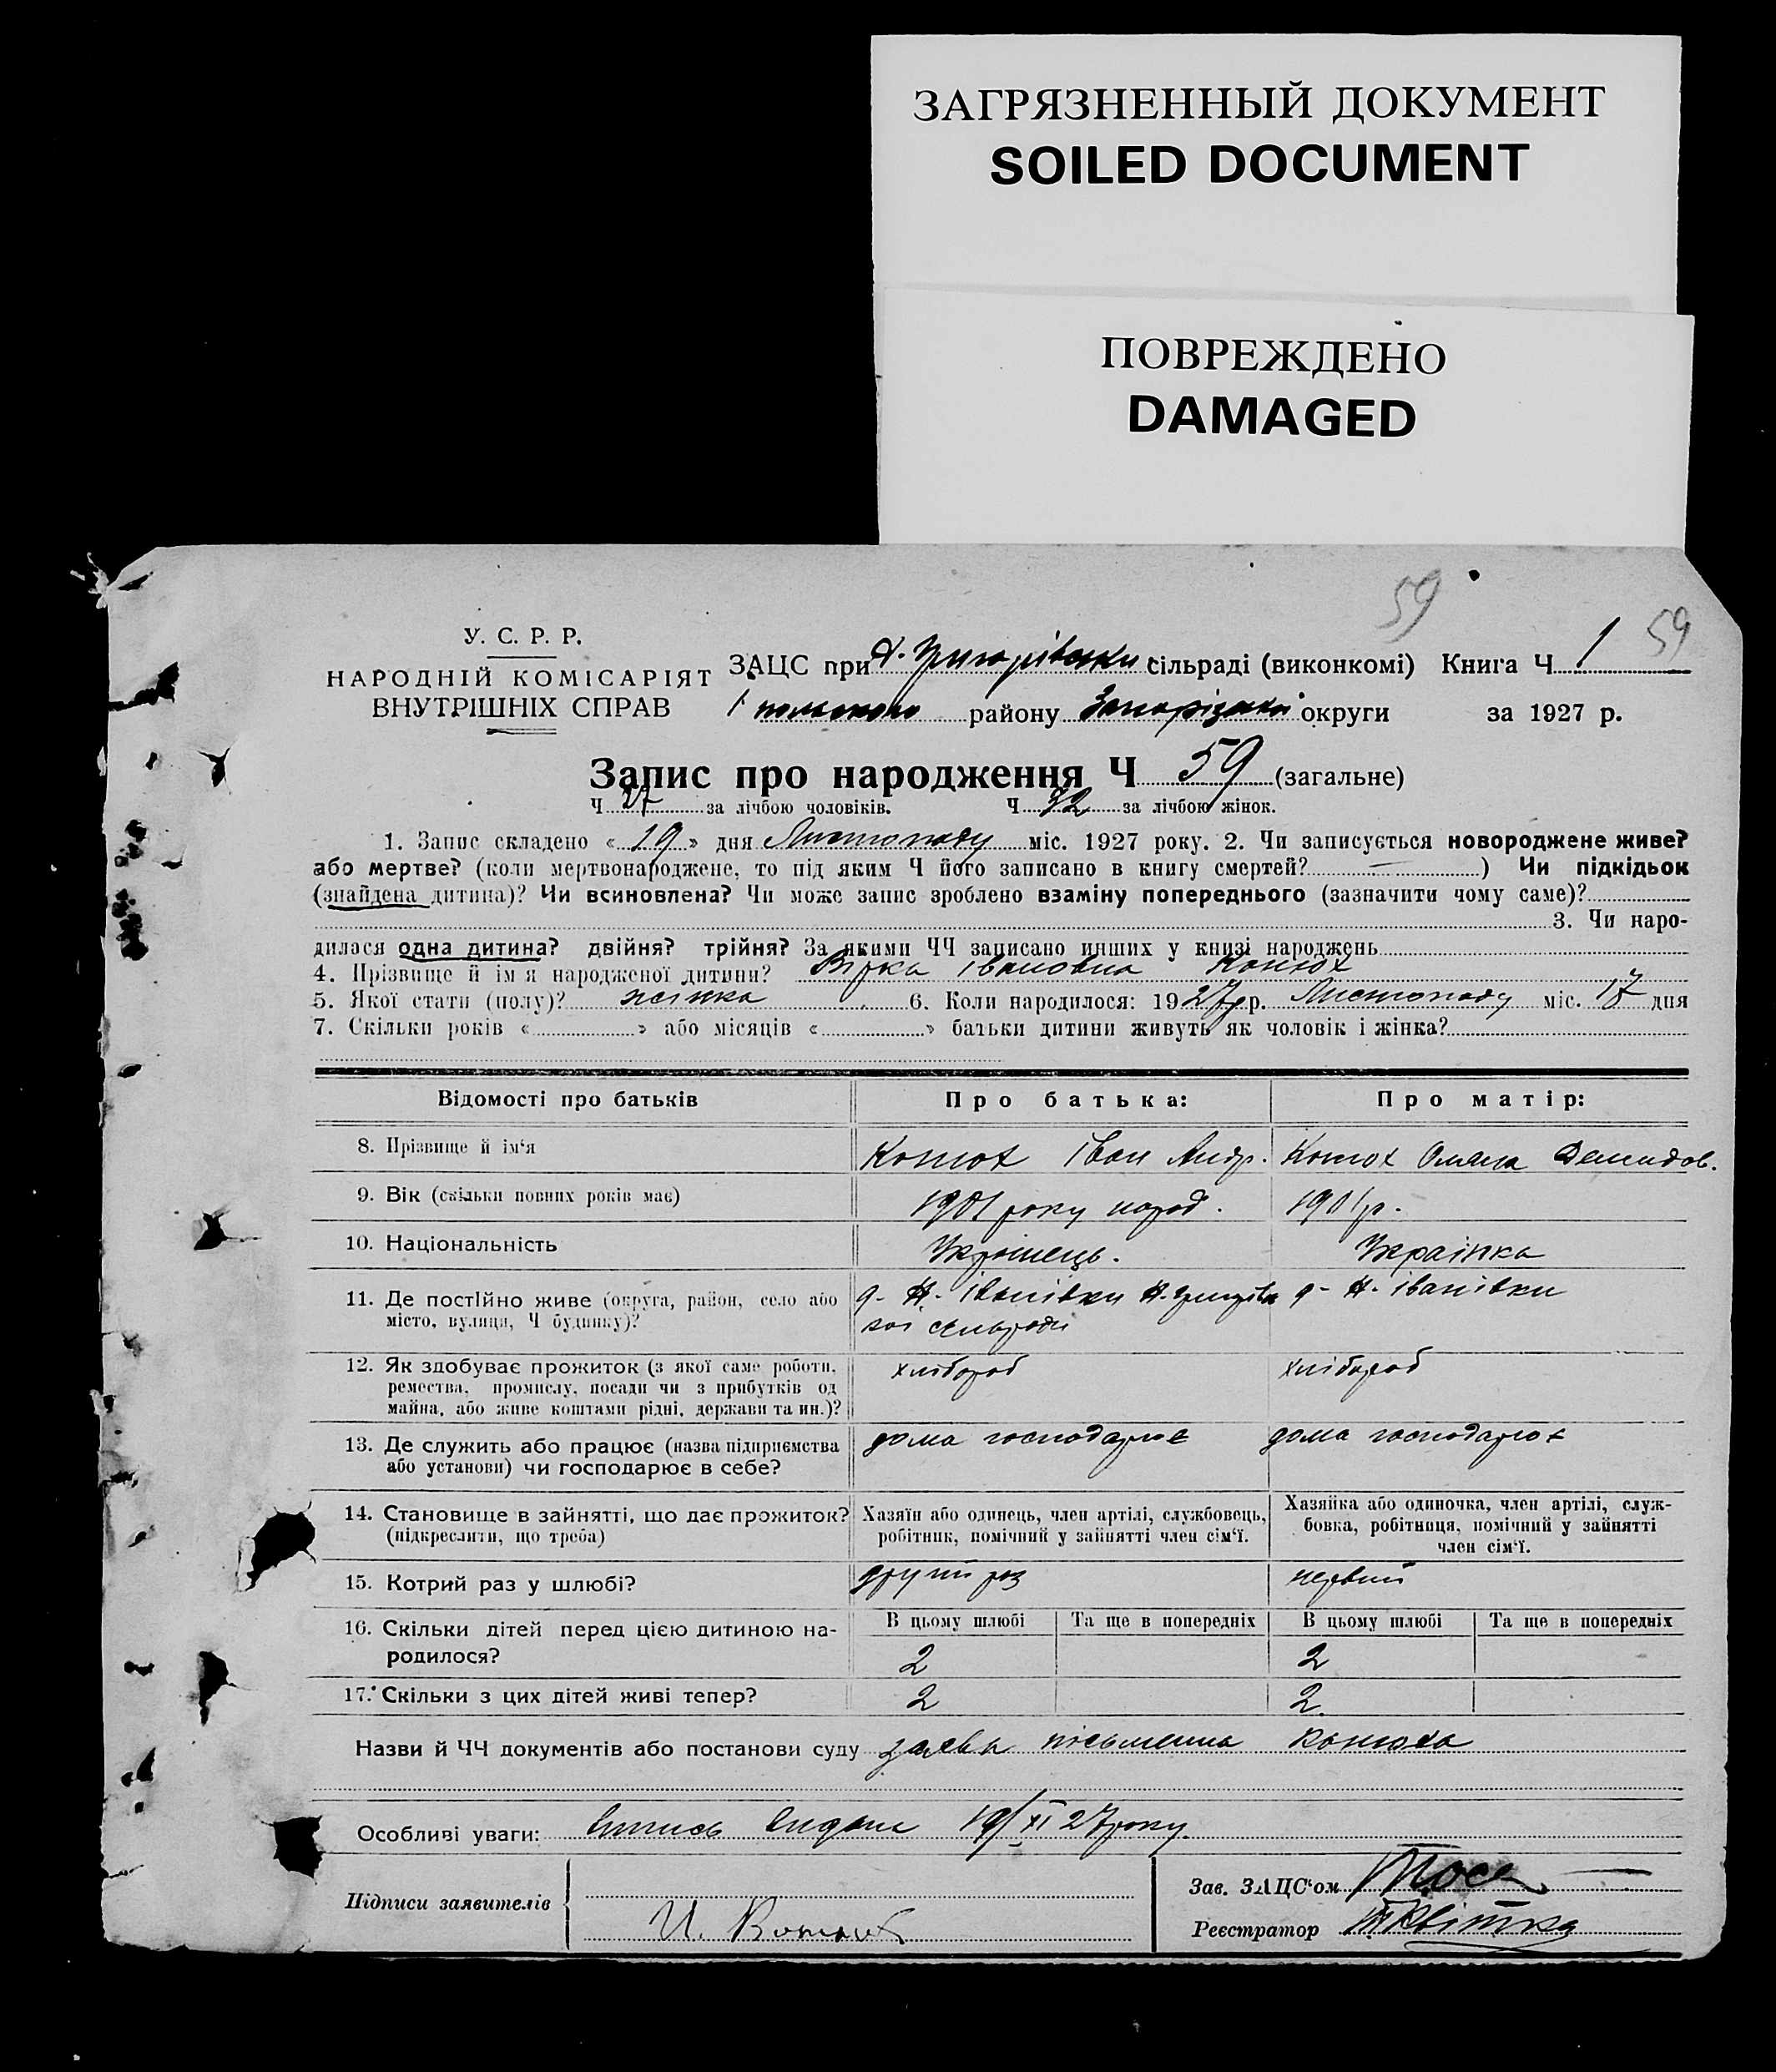 ЗАГРЯЗНЕННЫЙ ДОКУМЕНТ
SOILED DOCUMENT
ПОВРЕЖДЕНО
DAMAGED
59
59
У. С. Р. Р.
НАРОДНІЙ КОМІСАРІЯТ
ВНУТРІШНІХ СПРАВ
ЗАЦС при сільраді (виконкомі) Книга Ч 1
району Запорізької округи за 1927 р.
Запис про народження Ч 59 (загальне)
Ч 27 за лічбою чоловіків. Ч 32 за лічбою жінок.
1. Запис складено « 19 » дня Листопаду міс. 1927 року. 2. Чи записується новороджене живе?
або мертве? (коли мертвонароджене, то під яким Ч його записано в книгу смертей? — ) Чи підкідьок
(знайдена дитина)? Чи всиновлена? Чи може запис зроблено взаміну попереднього (зазначити чому саме)?
3. Чи наро-
дилася одна дитина? двійня? трійня? За якими ЧЧ записано инших у книзі народжень
4. Прізвище й ім'я народженої дитини? Вірка Івановна Конюх
5. Якої стати (полу)? жінка 6. Коли народилося: 1927 р. Листопаду міс. 17 дня
7. Скільки років « » або місяців « » батьки дитини живуть як чоловік і жінка?
Відомості про батьків Про батька: Про матір:
8. Прізвище й ім'я Конюх Іван Андр. Конюх Омелд Демидов.
9. Вік (скільки повних років має) 1901 року народ. 1901 р.
10. Національність Українець. Українка
11. Де постійно живе (округа, район, село або д- Н- Іванівки д- Н. Іванівки
місто, вулиця, Ч будинку)? сільради
12. Як здобуває прожиток (з якої саме роботи, хлібороб хлібороб
ремества, промислу, посади чи з прибутків од
майна, або живе коштами рідні, держави та ин.)?
13. Де служить або працює (назва підприємства дома господарює дома господарює
або установи) чи господарює в себе?
14. Становище в зайнятті, що дає прожиток? Хазяїн або одинець, член артілі, службовець, Хазяйка або одиночка, член артілі, служ-
(підкреслити, що треба) робітник, помічний у зайнятті член сім'ї. бовка, робітниця, помічний у зайнятті
член сім'ї.
15. Котрий раз у шлюбі? другий раз первий
16. Скільки дітей перед цією дитиною на- В цьому шлюбі Та ще в попередніх В цьому шлюбі Та ще в попередніх
родилося? 2 2
17. Скільки з цих дітей живі тепер? 2 2
Назви й ЧЧ документів або постанови суду заява письменна Конюха
Особливі уваги: випись видана 19/XI 27 року.
Підписи заявителів И. Конюх
Зав. ЗАЦС'ом
Реєстратор Квітка